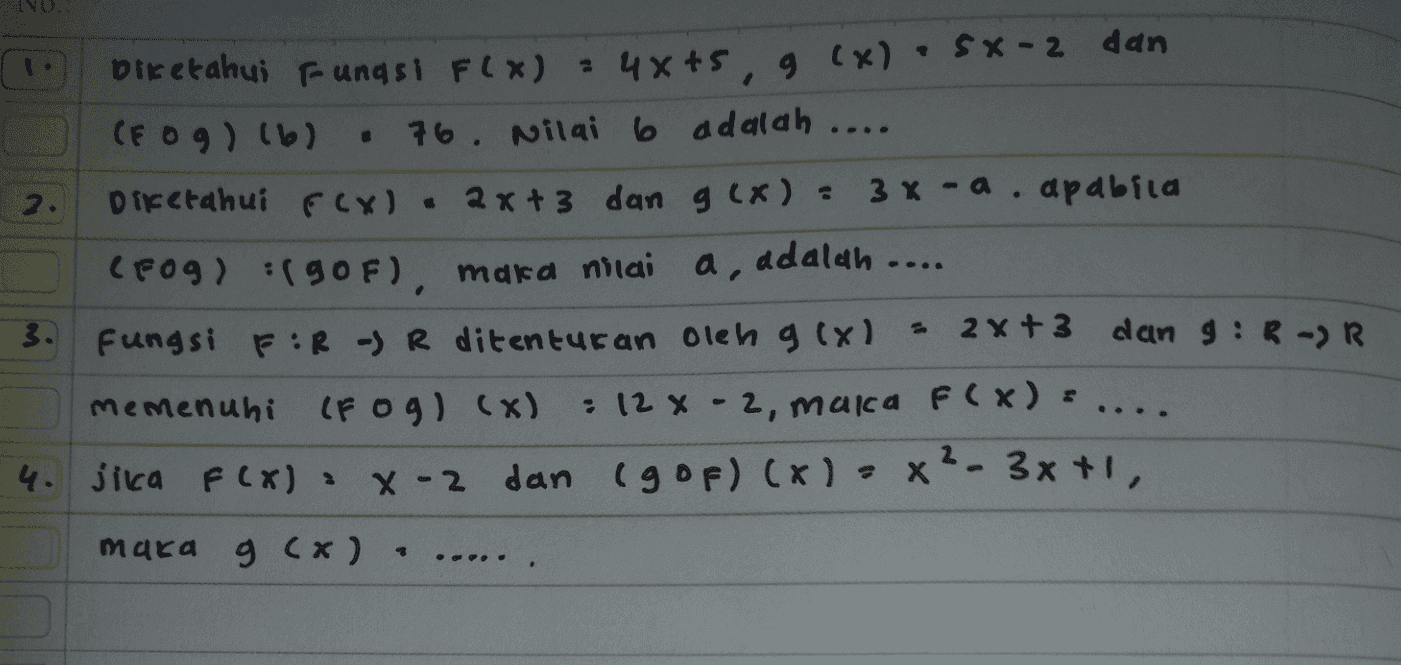 NO.:
1. Diketahui Fungsi F(x) = 4x+5, g (x) = 5x-2 dan
(F o g) (b) = 76. Nilai b adalah ....
2. Diketahui F(x) = 2x+3 dan g (x) = 3x - a. apabila
(Fog) =(goF), maka nilai a, adalah ....
3. Fungsi F:R -> R ditentukan oleh g (x) = 2x+3 dan g: R -> R
memenuhi (F o g) (x) = 12x - 2, maka F(x) = ....
4. jika F(x) = x - 2 dan (goF) (x) = x² - 3x + 1,
maka g (x) = ......